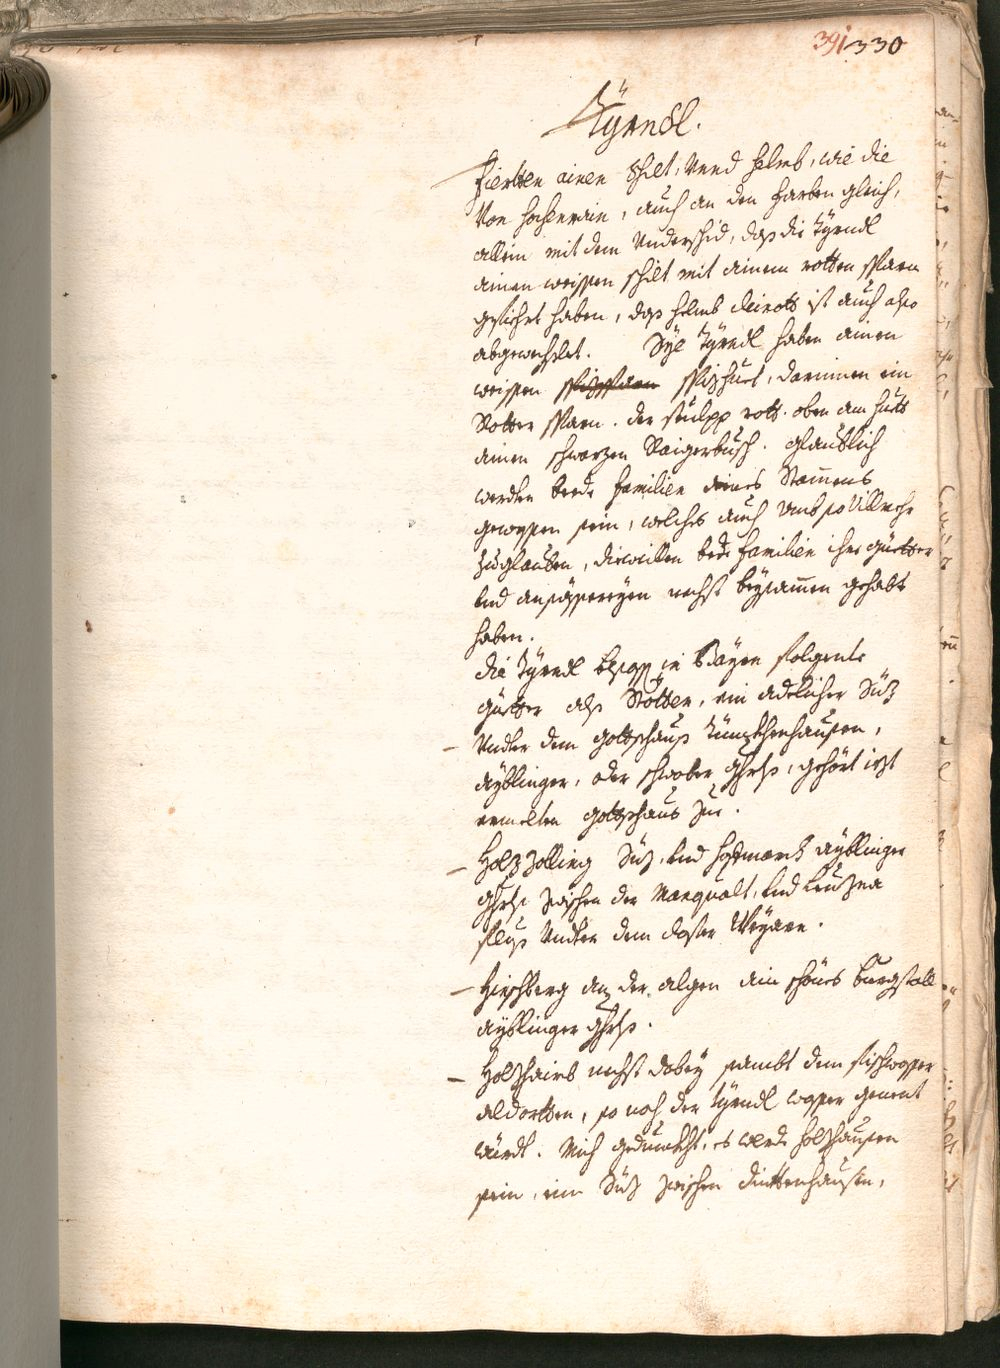 391 330
Tÿrndl.
Fierten ainen Schilt, Vnnd helmb, wie die
Von Hochenrain, auch an den Farben gleich,
allein mit dem Underschid, daß die Tÿrndl
ainen weissen schilt mit ainem rotten Sparn
gefiehrt haben, daß helmb cleinott ist auch also
abgewechslet. Dÿe Tÿrndl haben ainen
weissen Spizhuet, darinnen ein
Rotter Sparn. der stulpp rott. oben am huett
ainen schwarzen Raigerbusch. glaublich
werden beede Familien aines Stammens
gewessen sein, welches auch Umb so Villmehr
zuglauben, dieweillen bede Familien ihre güetter
Und ansässereÿen nechst beÿsamen gehabt
haben.
die Tÿrndl in Bäÿrn folgente
güetter alß Stötten, ein adelicher Süz
Undter dem gottshauß Dünzkhenhausen,
aÿblinger, oder schwaber Ghrts, gehört iezt
ermelten gottshaus zue.
Holzzolling Süz, Und hofmarch aÿblinger
Ghrts zwischen der Mangualt, Und Leuzna
fluß Undter dem closter Weÿarn.
Hirschberg an der algen ain schönes burgstall
aÿblinger Ghrts.
Holzhaimb nechst dabeÿ sambt dem fischwasser
aldortten, so noch der Tÿrndl wasser genent
würdt. Mich gedunckht, es werde Holzhausen
sein, ein Süz zwischen diettenhausen,